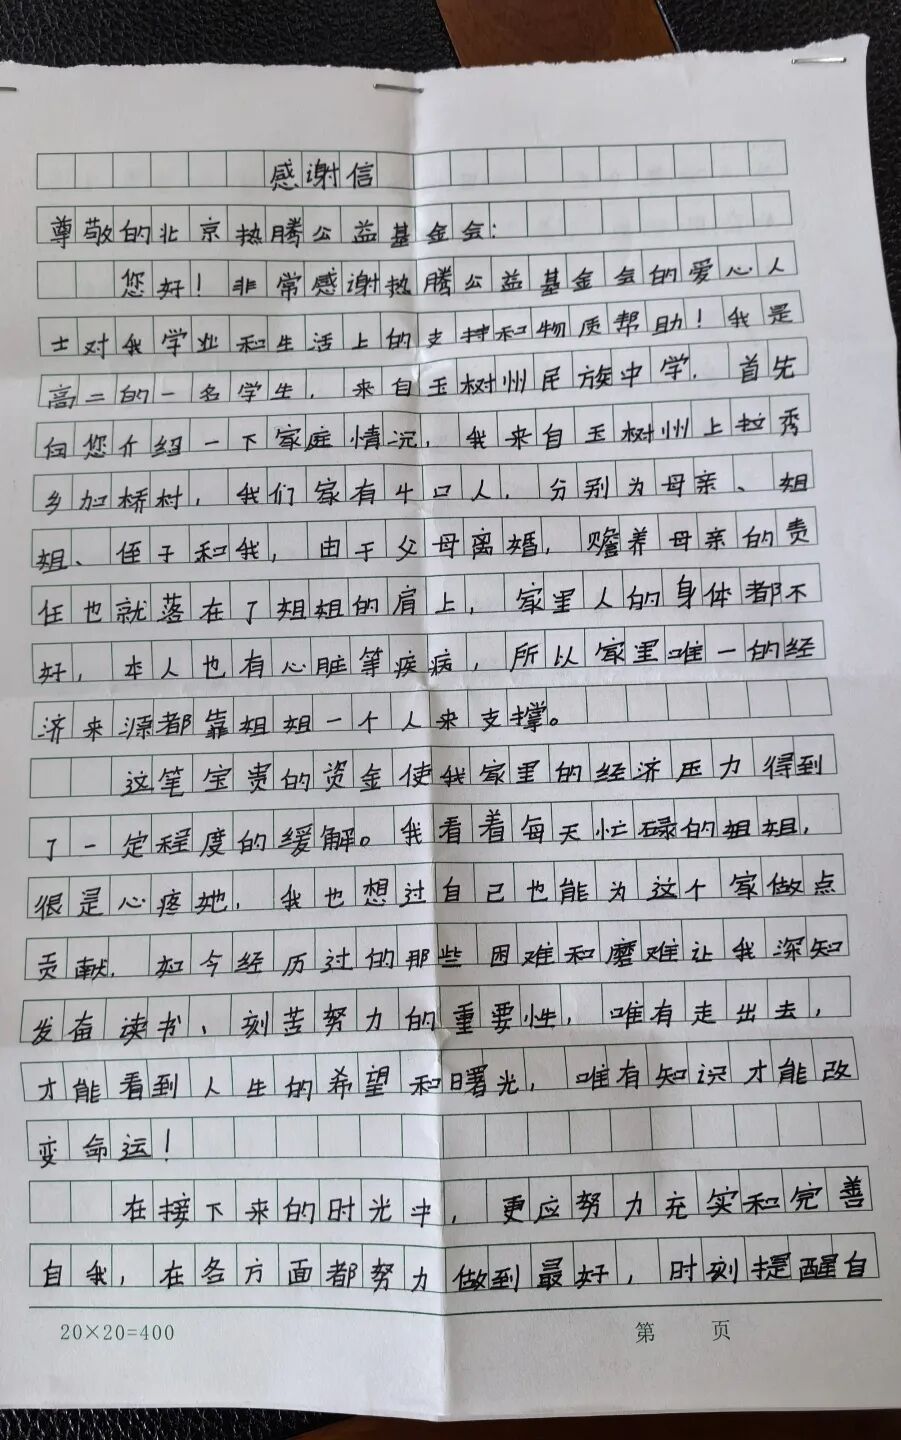 感谢信
尊敬的北京热腾公益基金会：
您好！非常感谢热腾公益基金会的爱心人
士对我学业和生活上的支持和物质帮助！我是
高二的一名学生，来自玉树州民族中学．首先
向您介绍一下家庭情况，我来自玉树州上拉秀
乡加桥村，我们家有4口人．分别为母亲、姐
姐、侄子和我，由于父母离婚，赡养母亲的责
任也就落在了姐姐的肩上，家里人的身体都不
好，本人也有心脏等疾病，所以家里唯一的经
济来源都靠姐姐一个人来支撑。
这笔宝贵的资金使我家里的经济压力得到
了一定程度的缓解。我看着每天忙碌的姐姐，
很是心疼她，我也想过自己也能为这个家做点
贡献．如今经历过的那些困难和磨难让我深知
发奋读书、刻苦努力的重要性，唯有走出去，
才能看到人生的希望和曙光，唯有知识才能改
变命运！
在接下来的时光中，更应努力充实和完善
自我，在各方面都努力做到最好，时刻提醒自
20×20=400 第 页